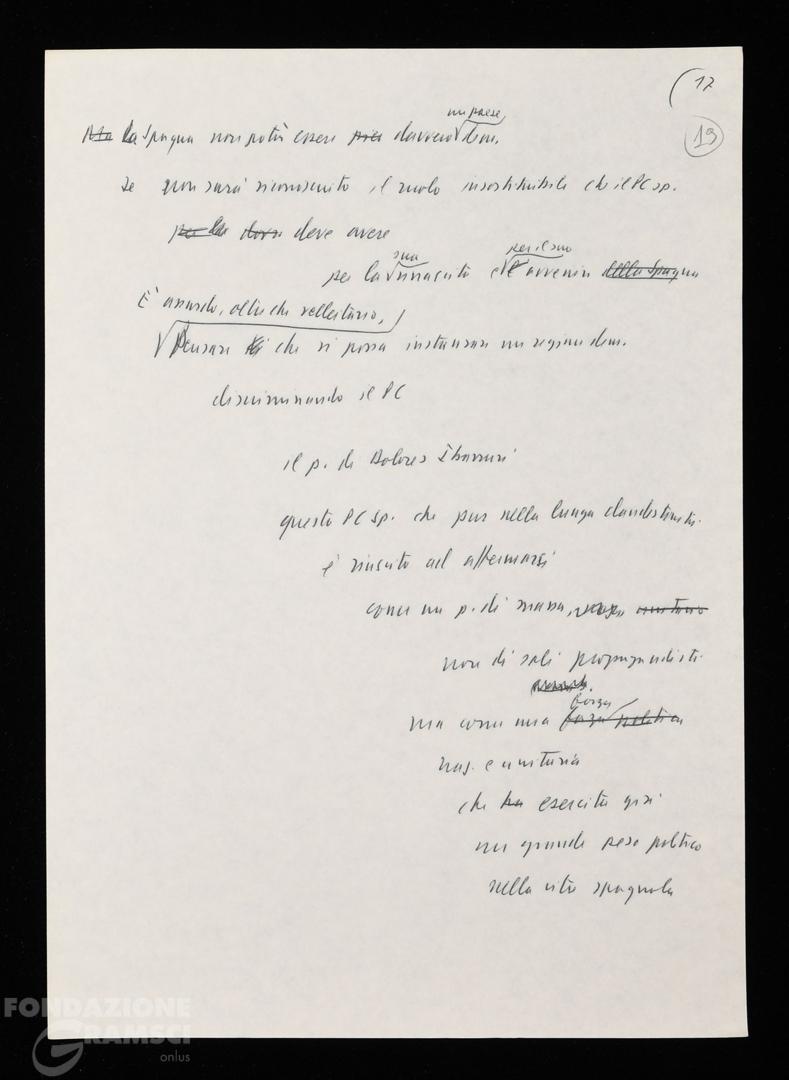 (17
19
un paese
Ma la Spagna non potrà essere più davvero dem.
se non sarà riconosciuto il ruolo insostituibile che il PC sp.
per la dove deve avere
sua per il suo
per la rinascita e l' avvenire della Spagna
È assurdo, oltre che velleitario,
Pensare che si possa instaurare un regime dem.
discriminando il PC
il p. di Dolores Ibarruri
questo PC sp. che pur nella lunga clandestinità
è riuscito ad affermarsi
come un p. di massa, unitario
non di soli propagandisti
forza
ma come una forza politica
naz. e unitaria
che ha esercita già
un grande peso politico
nella vita spagnola
FONDAZIONE
GRAMSCI
onlus